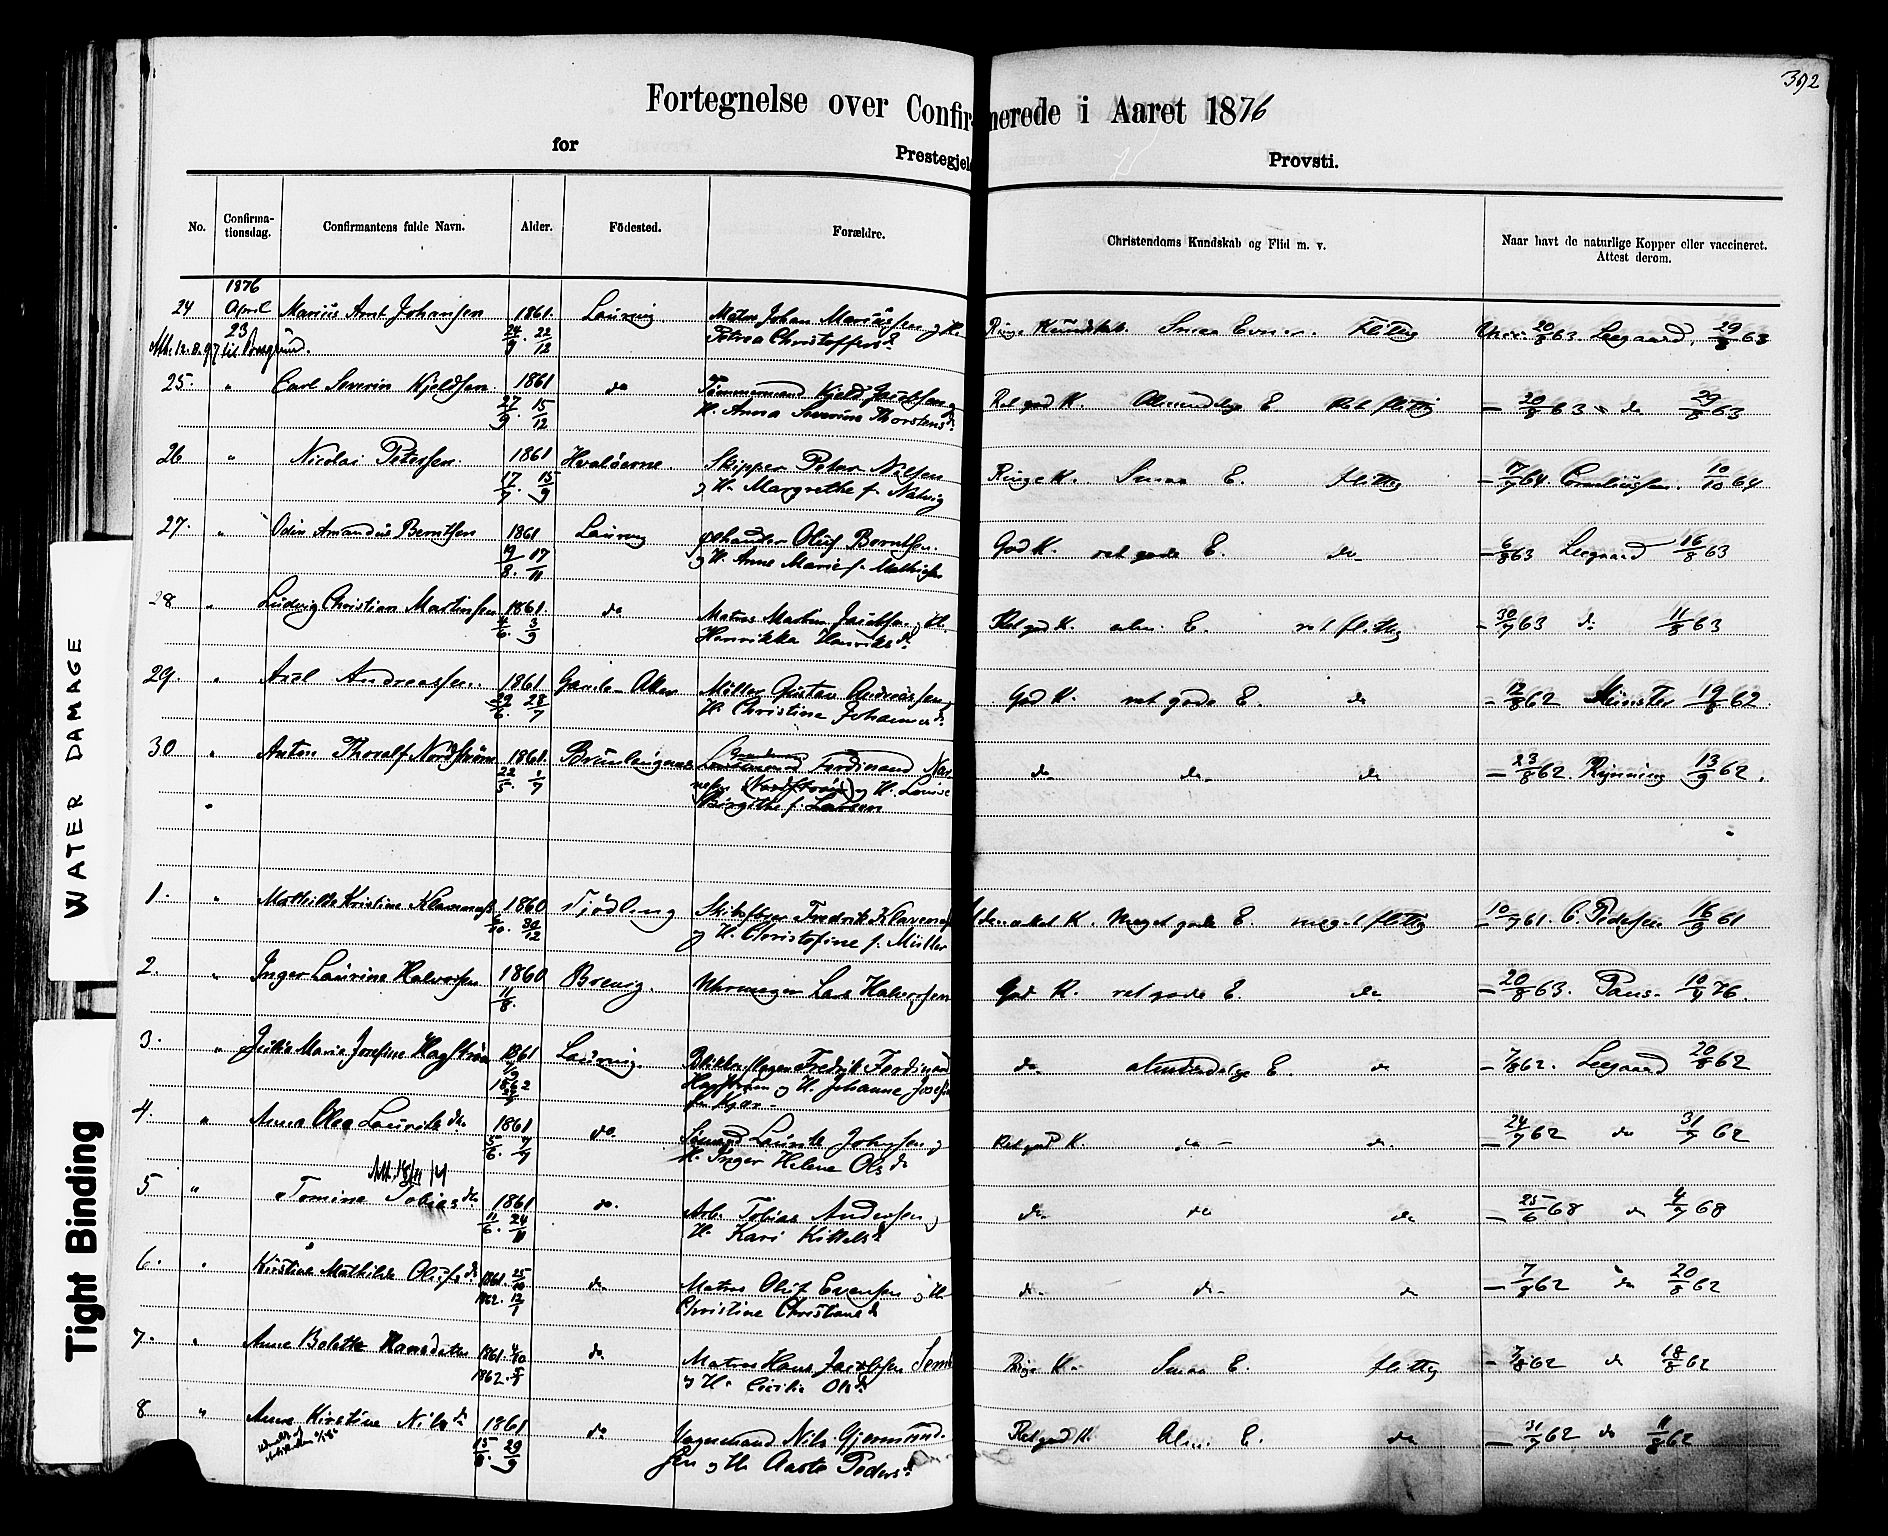 392
Fortegnelse over Confirmerede i Aaret 1876
for Prestegjeld Provsti.
No. Confirma-tionsdag. Confirmantens fulde Navn. Alder. Födested. Forældre. Christendoms Kundskab og Flid m. v. Naar havt de naturlige Kopper eller vaccineret. Attest derom.
1876
24 April Marius Arnt Johansen 1861 Laurvig Matros Johan Mariussen og H. Ringe Kundskab. Smaa Evner. Flittig Vacc. 20/8 63 Leegaard, 29/8 63
23 24/9. 22/12 Petrea Christoffersd.
Att. 12.8.97 til
25. " Carl Severin Kjeldsen 1861 do Tømmermand Kjeld Jacobsen Ret god K. Almindelige E. Ret flittig — 20/8 63 do 29/8 63
27/9. 15/12 H. Anna Severine Thorstensd.
26 " Nicolai Petersen 1861 Hvaløerne Skipper Peter Nilsen Ringe K. Smaa E. flittig — 7/7 64 Corneliussen. 10/10 64
17/7. 15/9 og H. Margrethe f. Natvig
27. " Odin Amandus Berntsen 1861 Laurvig Oluf Berntsen God K. ret gode E. do — 6/8 63 Leegaard 16/8 63
19/8. 17/11 og H. Anne Marie f. Mathisen
28 " Ludvig Christian Martinsen 1861. do Matros Martin Jacobsen og H. Ret god K. alm. E. ret flittig — 30/7 63 do 11/8 63
4/6. 3/9 Henrikka Henriksd.
29. " Axel Andreassen 1861 Gamle-Aker Møller Gustav Andreassen God K. ret gode E. do — 12/8 62 Münster 19/8 62.
22/6. 28/7 H. Christine Johannesd.
30 " Anton Thoralf Nordstrøm 1861. Ferdinand do do do — 23/8 62 Rynning 13/9 62.
22/5 1/7 (Nordstrøm) og H. Louise
" Birgithe f. Larsen
1. " Mathilde Kristine Klavenæs 1860 Tjødling Skibsfører Fredrik Klavenæs K. Meget gode E. meget flittig — 10/7 61. C. Pedersen 16/9 61
30/12 og H. Christofine f. Müller
2. " Inger Laurine Halvorsen 1860 Brevig. Uhrmager Lars Halvorsen God K. ret gode E. do — 20/8 63. Paus. 10/4 76.
11/8.
3. " Julie Marie Josefine Hagstrøm 1861 Laurvig. Fredrik Ferdinand do almindelige E. do — 7/8 62. Leegaard 20/8 62
1862 Hagstrøm og H. Johanne Josefine
f. Kjær.
4. " Anna Olea Lauritsdr. 1861 do. Sømand Laurits Johnsen og Ret god K. do — do — 24/7 62 do 31/7 62
5/6. 7/7 H. Inger Helene Olsdr
5 " Tomine Tobiasdr. 1861 do. Arb. Tobias Andersen og do do do — 25/6 68 do 4/7 68
11/6. 24/11 H. Kari Kittelsd.
6. " Kirstine Mathilde Olufsdr. 1861. 25/10 do Matros Oluf Evensen og H. do do do — 7/8 62 do 20/8 62
1862. 12/1 Christine Christiansdr
7. " Anne Bolette Hansdatter 1861. 4/10 do Matros Hans Jacobsen Sem Ringe K. Smaa E. flittig — 7/8 62 do 18/8 62
1862. og H. Cecilie Olsdr.
8 " Anne Kirstine Nilsdr. 1861 do Vognmand Nils Gjermund- Ret god K. Alm. E. do — 31/7 62 do 11/8 62
15/6. 29/9 sen og H. Aaste Pedersd.
WATER DAMAGE
Tight Binding